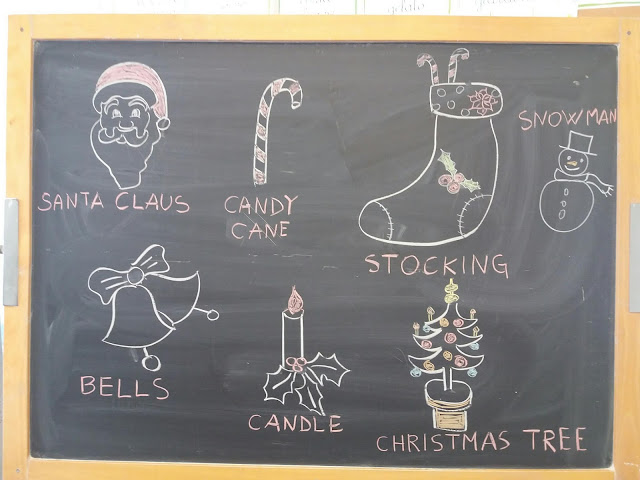 SNOWMAN
SANTA CLAUS
CANDY
CANE
STOCKING
BELLS
CANDLE
CHRISTMAS TREE